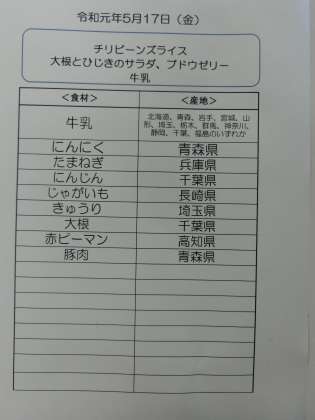 令和元年5月17日(金)
チリビーンズライス
大根とひじきのサラダ、ブドウゼリー
牛乳
<食材> <産地>
牛乳 北海道、青森、岩手、宮城、山
形、埼玉、栃木、群馬、神奈川、
静岡、千葉、福島のいずれか
にんにく 青森県
たまねぎ 兵庫県
にんじん 千葉県
じゃがいも 長崎県
きゅうり 埼玉県
大根 千葉県
赤ピーマン 高知県
豚肉 青森県